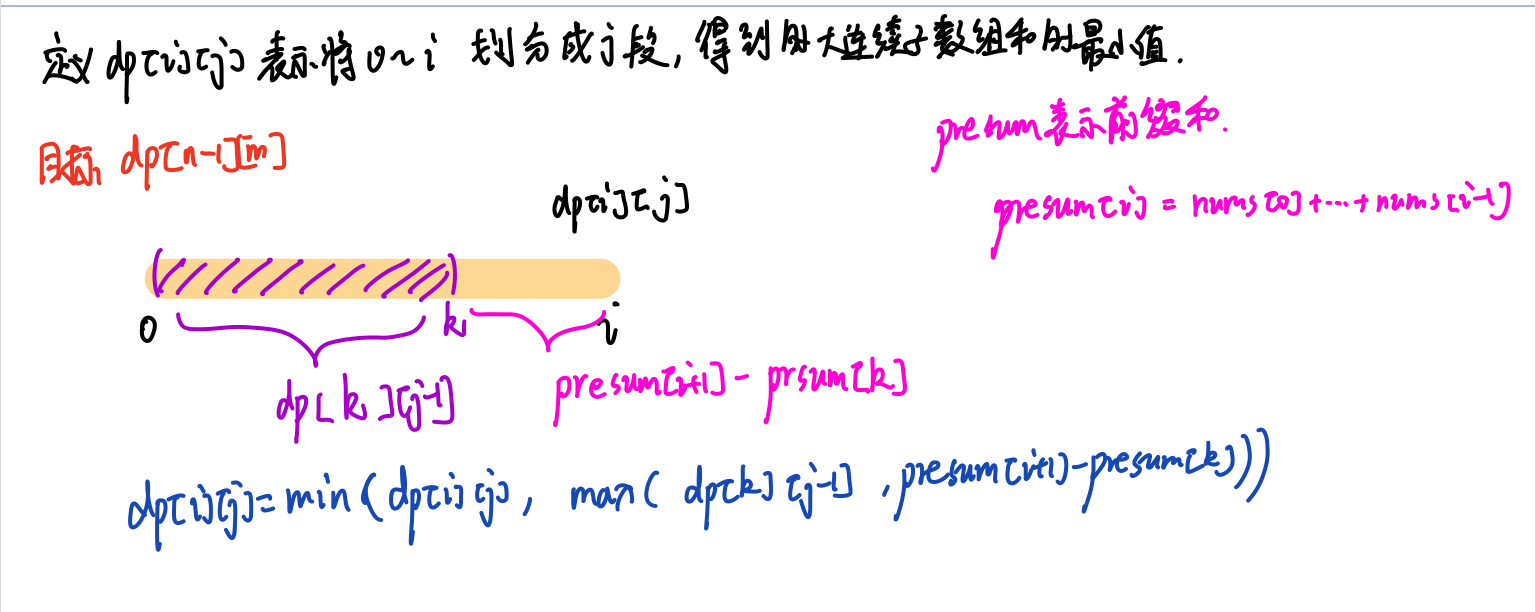 定义 dp[i][j] 表示将 0~i 划分成 j 段, 得到的大连续子数组和的最小值.
presum表示前缀和.
目标, dp[n-1][m]
dp[i][j]
presum[i] = nums[0]+...+nums[i-1]
0
k
i
dp[k][j-1]
presum[i+1] - prsum[k]
dp[i][j]=min(dp[i][j], max( dp[k][j-1] ,presum[i+1]-presum[k]))